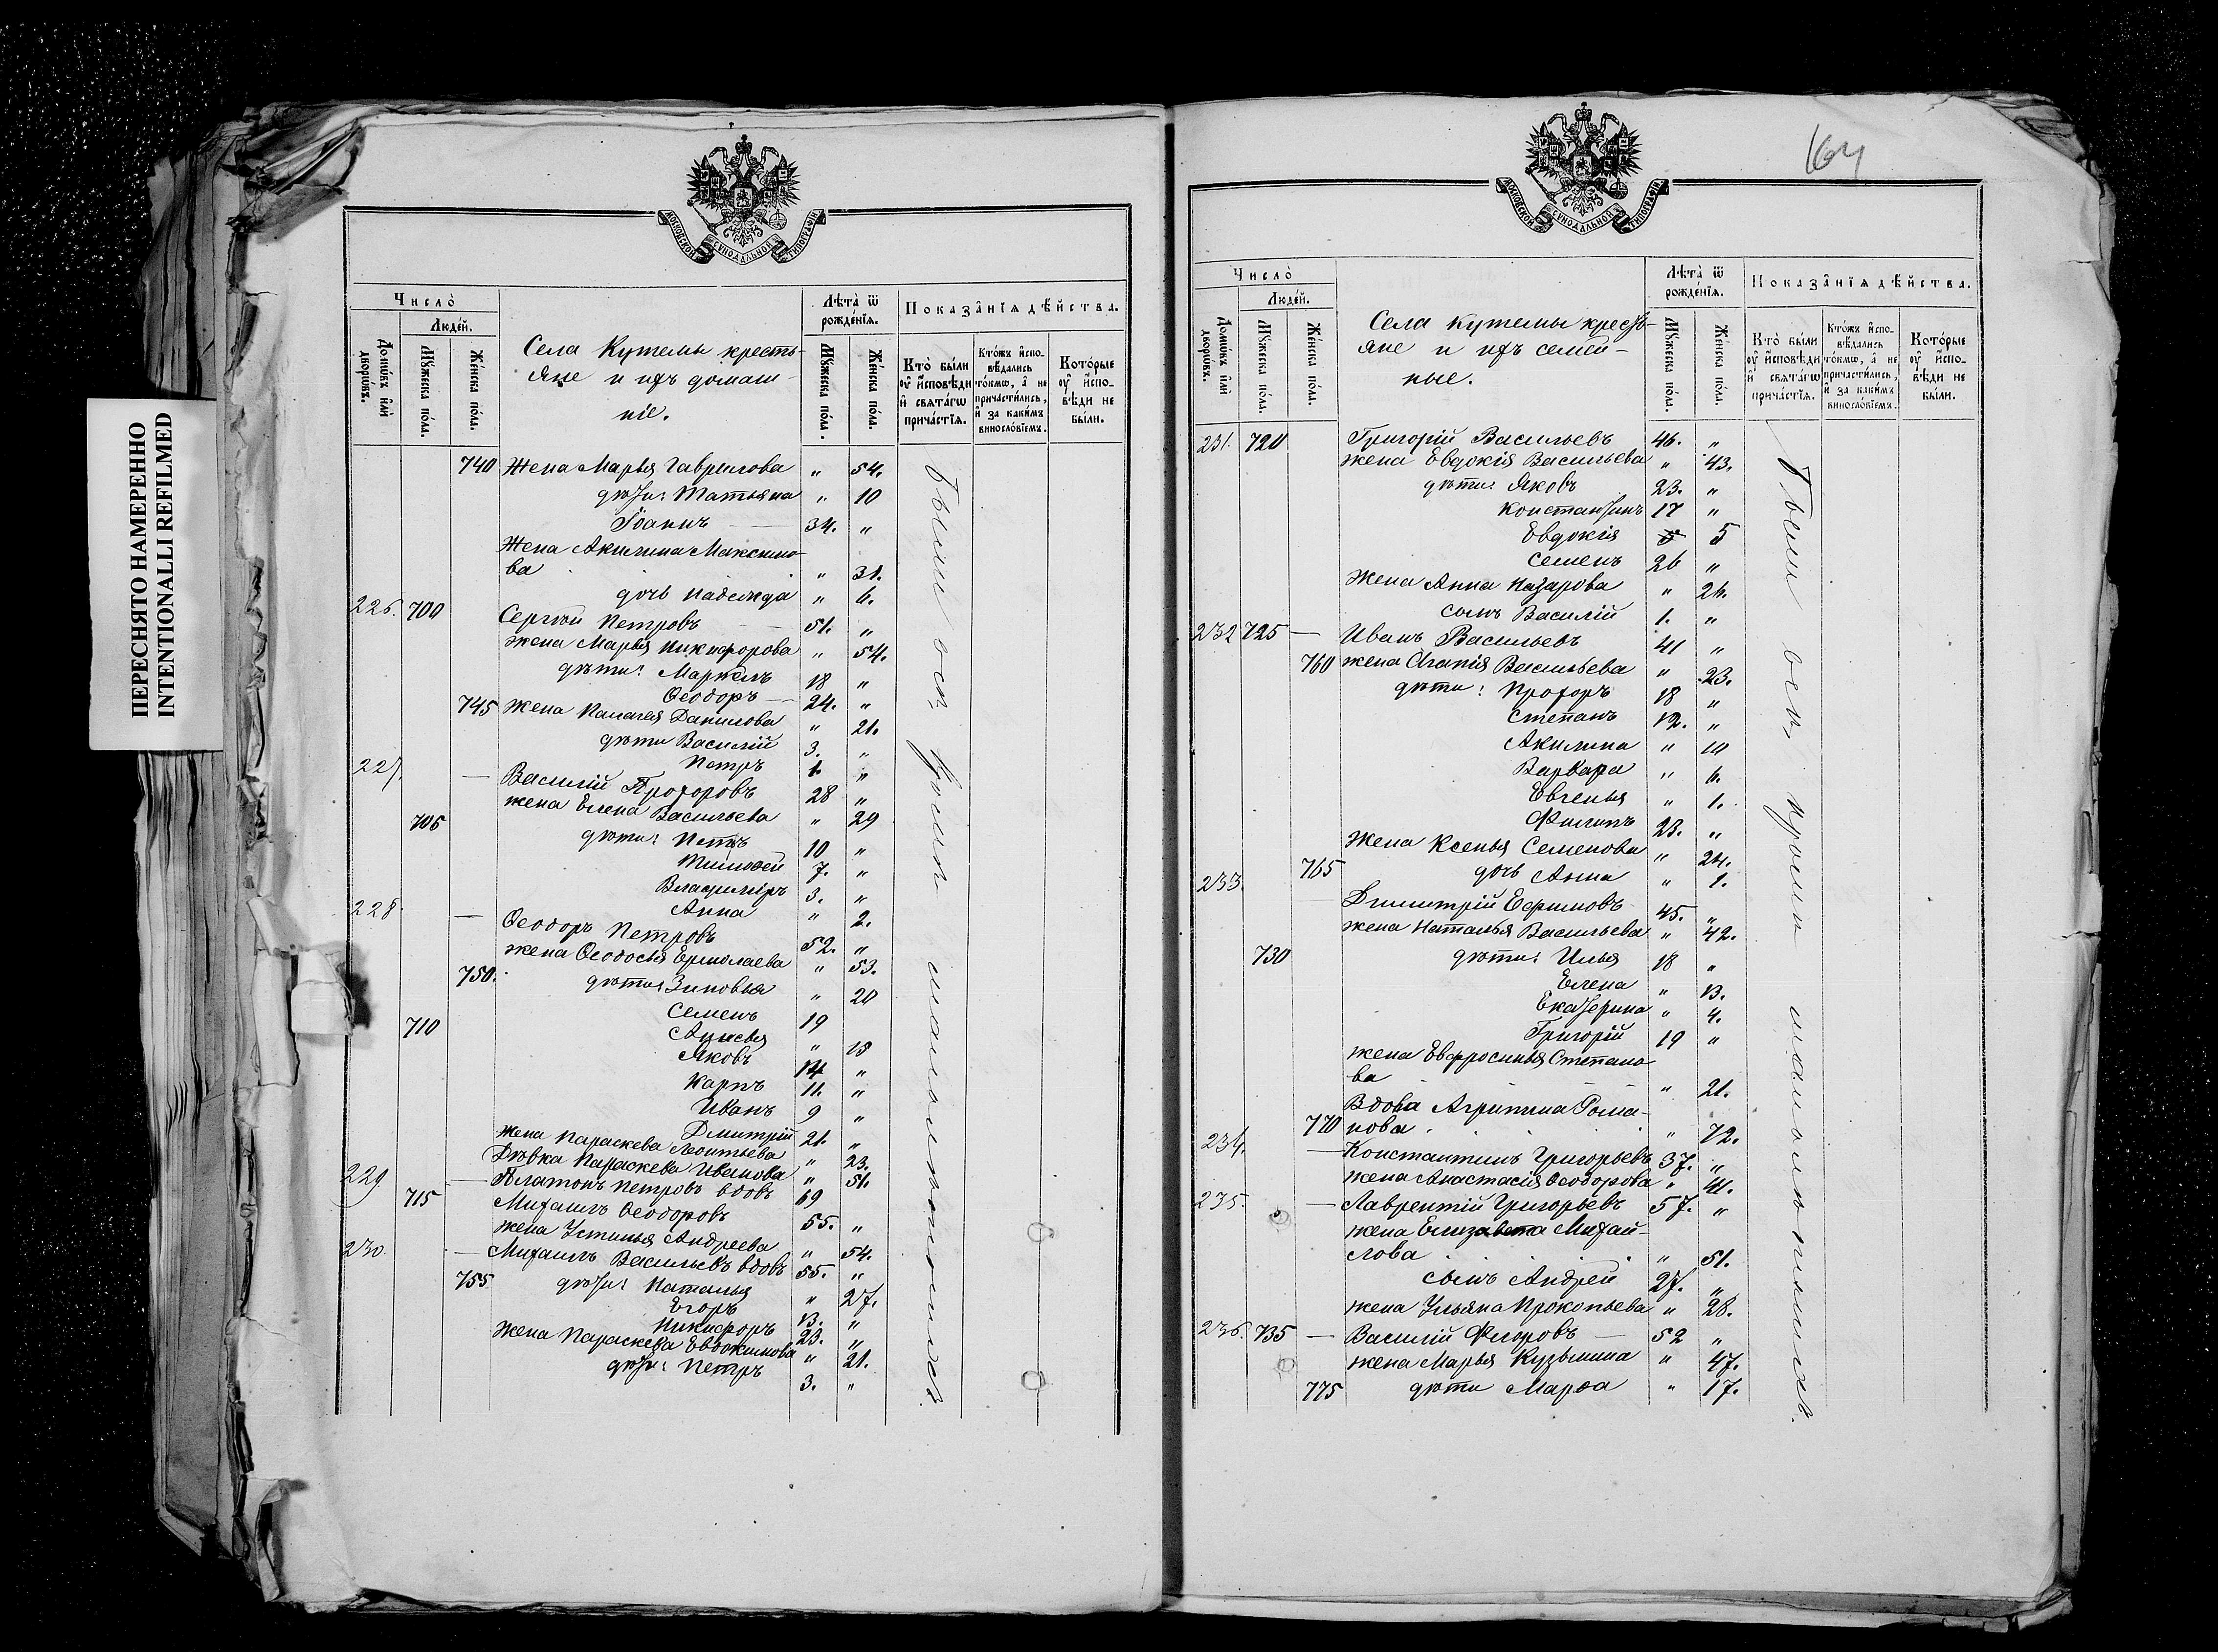 ПЕРЕСНЯТО НАМЕРЕННО
INTENTIONALLI REFILMED
МОСКОВСКОЙ СѴНОДАЛЬНОЙ ТИПОГРАФІИ
Число̀
Людéй.
Домѡ́въ и҆лѝ дворѡ́въ.
Мꙋ́жеска по́ла.
Же́нска по́ла.
Села Кутемы кресть-
яне и ихъ домаш-
ніе.
Лѣта̀ ѿ рожде́нїѧ.
Мꙋ́жеска по́ла.
Же́нска по́ла.
Показа̂нїѧ дѣ́йства.
Кто̀ бы́ли ᲂу҆ и҆сповѣди и҆ свѧта́гѡ прича́стїѧ.
Кто́жъ и҆спо-вѣдались то́кмѡ, а҆ не причасти́лись, и҆ за каки́мъ винословїемъ.
Кото́рые ᲂу҆ и҆спо-вѣди не бы́ли.
740 Жена Марья Гаврилова " 54.
дѣти: Татьяна " 10
Іоаннъ 34. "
Жена Акилина Максимо-
ва " 31.
дочь Надежда " 6.
226. 700 Сергѣй Петровъ 51. "
жена Марья Никифорова " 54.
дѣти: Маркелъ 18 "
Ѳеодоръ 24. "
745 жена Палагея Данилова " 21.
дѣти Василій 3. "
Петръ 1. "
227. — Василій Прохоровъ 28 "
жена Елена Васильева " 29
705 дѣти: Петръ 10 "
Тимоѳей 7. "
Владиміръ 3. "
Анна " 2.
228. — Ѳеодоръ Петровъ 52. "
жена Ѳеодосья Ермолаева " 53.
750. дѣти: Зиновья " 20
710 Семенъ 19
Анисья " 15
Яковъ 14 "
Карпъ 11. "
Иванъ 9 "
Дмитрій 21. "
жена Параскева Леонтьева " 23.
Дѣвка Параскева Иванова " 51.
229 — Платонъ Петровъ вдовъ 69
715 Михаилъ Ѳеодоровъ 55. "
жена Устинья Андреева " 54.
230. — Михаилъ Васильевъ вдовъ 55. "
755 дѣти: Наталья " 27.
Егоръ 13. "
Никифоръ 23. "
жена Параскева Евдокимова " 21.
дѣти: Петръ 3. "
Были всѣ кромѣ малолѣтнихъ.
164
МОСКОВСКОЙ СѴНОДАЛЬНОЙ ТИПОГРАФІИ
Число̀
Людéй.
Домѡ́въ и҆лѝ дворѡ́въ.
Мꙋ́жеска по́ла.
Же́нска по́ла.
Села Кутемы кресть-
яне и ихъ семей-
ные.
Лѣта̀ ѿ рожде́нїѧ.
Мꙋ́жеска по́ла.
Же́нска по́ла.
Показа̂нїѧ дѣ́йства.
Кто̀ бы́ли ᲂу҆ и҆сповѣди и҆ свѧта́гѡ прича́стїѧ.
Кто́жъ и҆спо-вѣдались то́кмѡ, а҆ не причасти́лись, и҆ за каки́мъ винословїемъ.
Кото́рые ᲂу҆ и҆спо-вѣди не бы́ли.
231. 720 Григорій Васильевъ 46. "
жена Евдокія Васильева " 43.
дѣти: Яковъ 23. "
Константинъ 17 "
Евдокія 5 5
Семенъ 26 "
жена Анна Назарова " 24.
сынъ Василій 1. "
232 725 — Иванъ Васильевъ 41 "
760 жена Агапія Васильева " 23.
дѣти: Прохоръ 18 "
Степанъ 12. "
Акилина " 10
Варвара " 6.
Евгенья " 1.
Филипъ 23. "
жена Ксенья Семенова " 24.
765 дочь Анна " 1.
233. Димитрій Ефимовъ 45. "
жена Наталья Васильева " 42.
730 дѣти: Илья 18 "
Елена " 13.
Екатерина " 4.
Григорій 19 "
жена Евфросинья Степано-
ва " 21.
Вдова Агрипина Рома-
770 нова " 72.
234. — Константинъ Григорьевъ 37. "
жена Анастасія Ѳеодорова " 41.
235. — Лаврентій Григорьевъ 57. "
жена Елизавета Михай-
лова " 51.
сынъ Андрей 27. "
жена Ульяна Прокопьева " 28.
236. 735 — Василій Ѳедоровъ 52 "
жена Марья Кузьмина " 47.
775 дѣти Марѳа " 17.
Были всѣ кромѣ малолѣтнихъ.